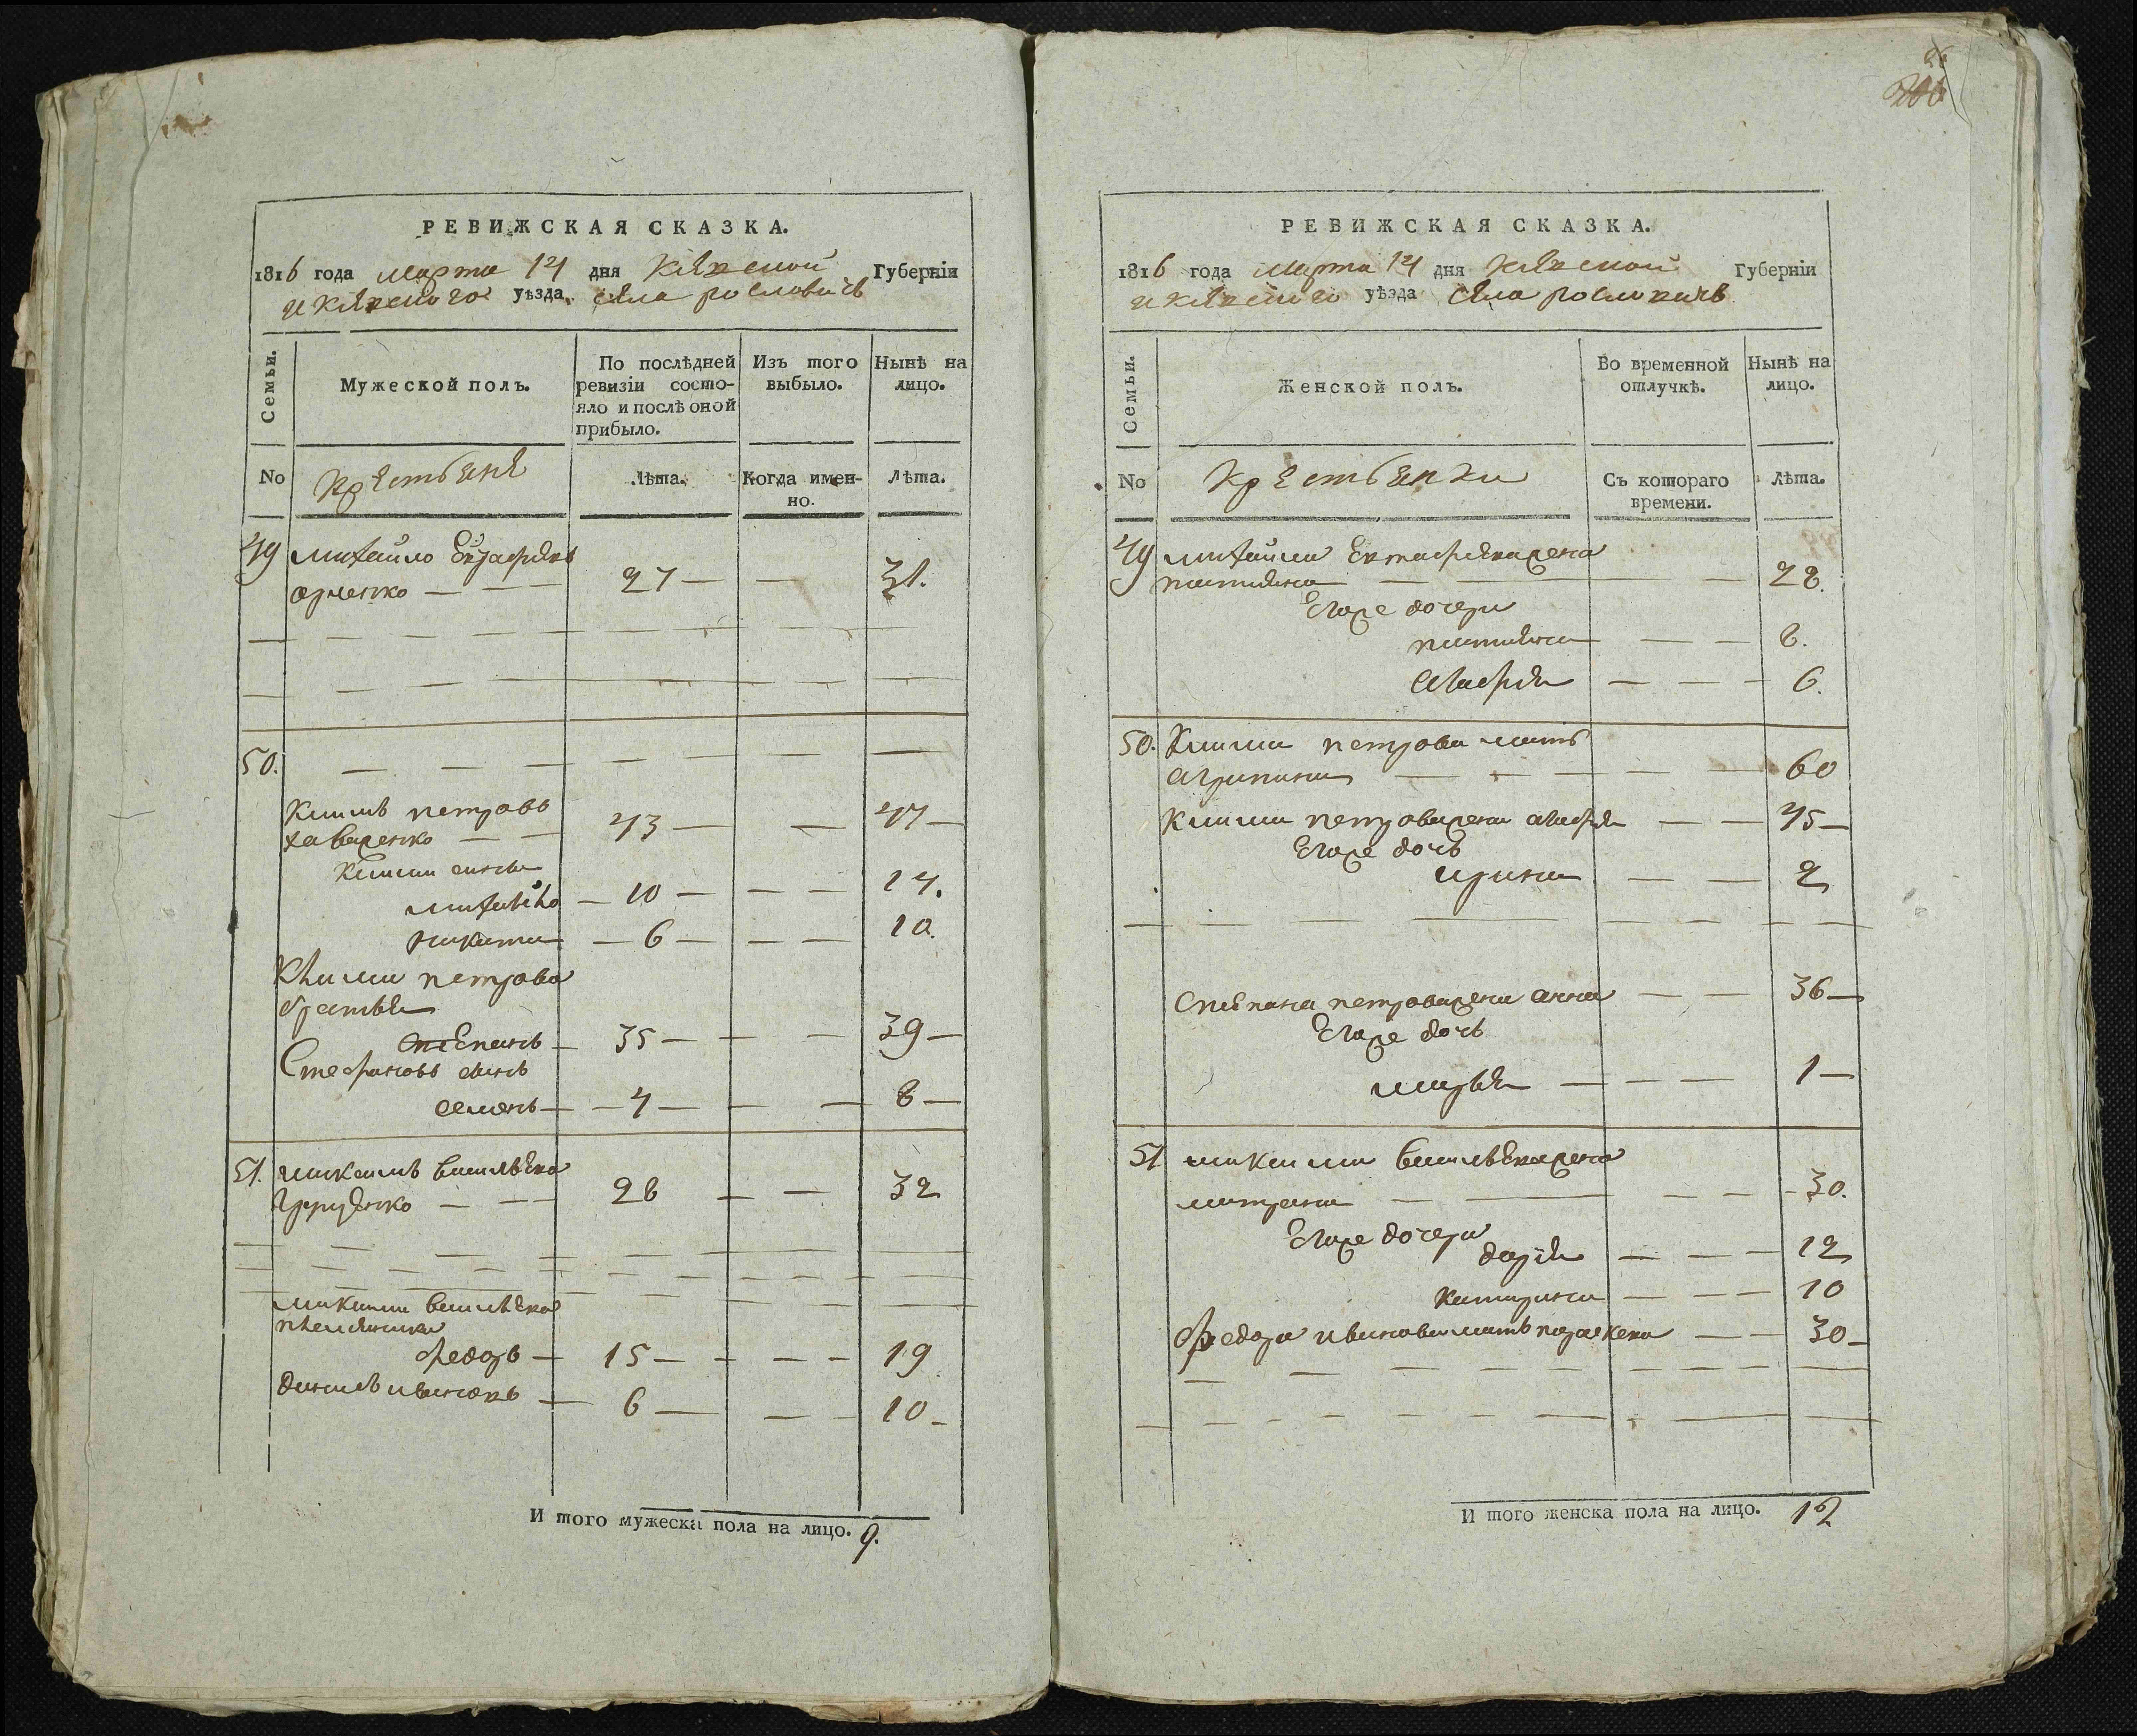 РЕВИЖСКАЯ СКАЗКА.
1816 года марта 14 дня Киевской Губерніи
и Киевского уѣзда села рословичъ
Семьи.
Мужеской полъ.
По послѣдней ревизіи состо-
яло и послѣ оной
прибыло.
Изъ того
выбыло.
Нынѣ на
лицо.
No
крестьяне
Лѣта.
Когда имен-
но.
Лѣта.
49 михайло Евтафіевъ
27 — — 31.
50.
климъ петровъ
43 — — 47 —
клими сины
михайло — 10 — — — 14.
никита — 6 — — — 10.
клима петрова
братья
степанъ — 35 — — — 39 —
Стефановъ синъ
семенъ — 4 — — — 8 —
51. максимъ василіевъ
28 — — 32
максима василіева
племяники
федоръ — 15 — — — — 19
данило ивановъ — 6 — — — 10 —
И того мужеска пола на лицо. 9.
РЕВИЖСКАЯ СКАЗКА.
1816 года марта 14 дня Киевской Губерніи
и Киевского уѣзда села рословичъ
Семьи.
Женской полъ.
Во временной
отлучкѣ.
Нынѣ на
лицо.
No
крестьянки
Съ котораго
времени.
Лѣта.
49 михайла Евтафіева жена
татияна — — — — 28.
Его же дочери
татияна — — — 8.
агафія — — — 6.
50. клима петрова мать
агрипина — — — — — 60
клима петрова жена агафія — — 45 —
Его же дочь
ирина — — 2
степана петрова жена анна — — 36 —
Его же дочь
марья — — — 1 —
51 максима василіева жена
матрона — — — — 30.
Его же дочери
дарія — — — 12
катирина — — — 10
федора иванова мать параскева — — 30 —
И того женска пола на лицо. 12